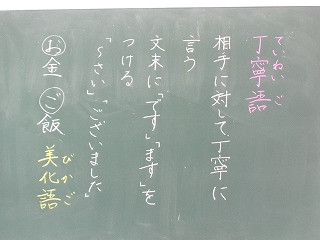 ていねいご
丁寧語
相手に対して丁寧に
言う
文末に「です」「ます」を
つける
「～さい」「ございました」
お金 ご飯 美化語
びかご